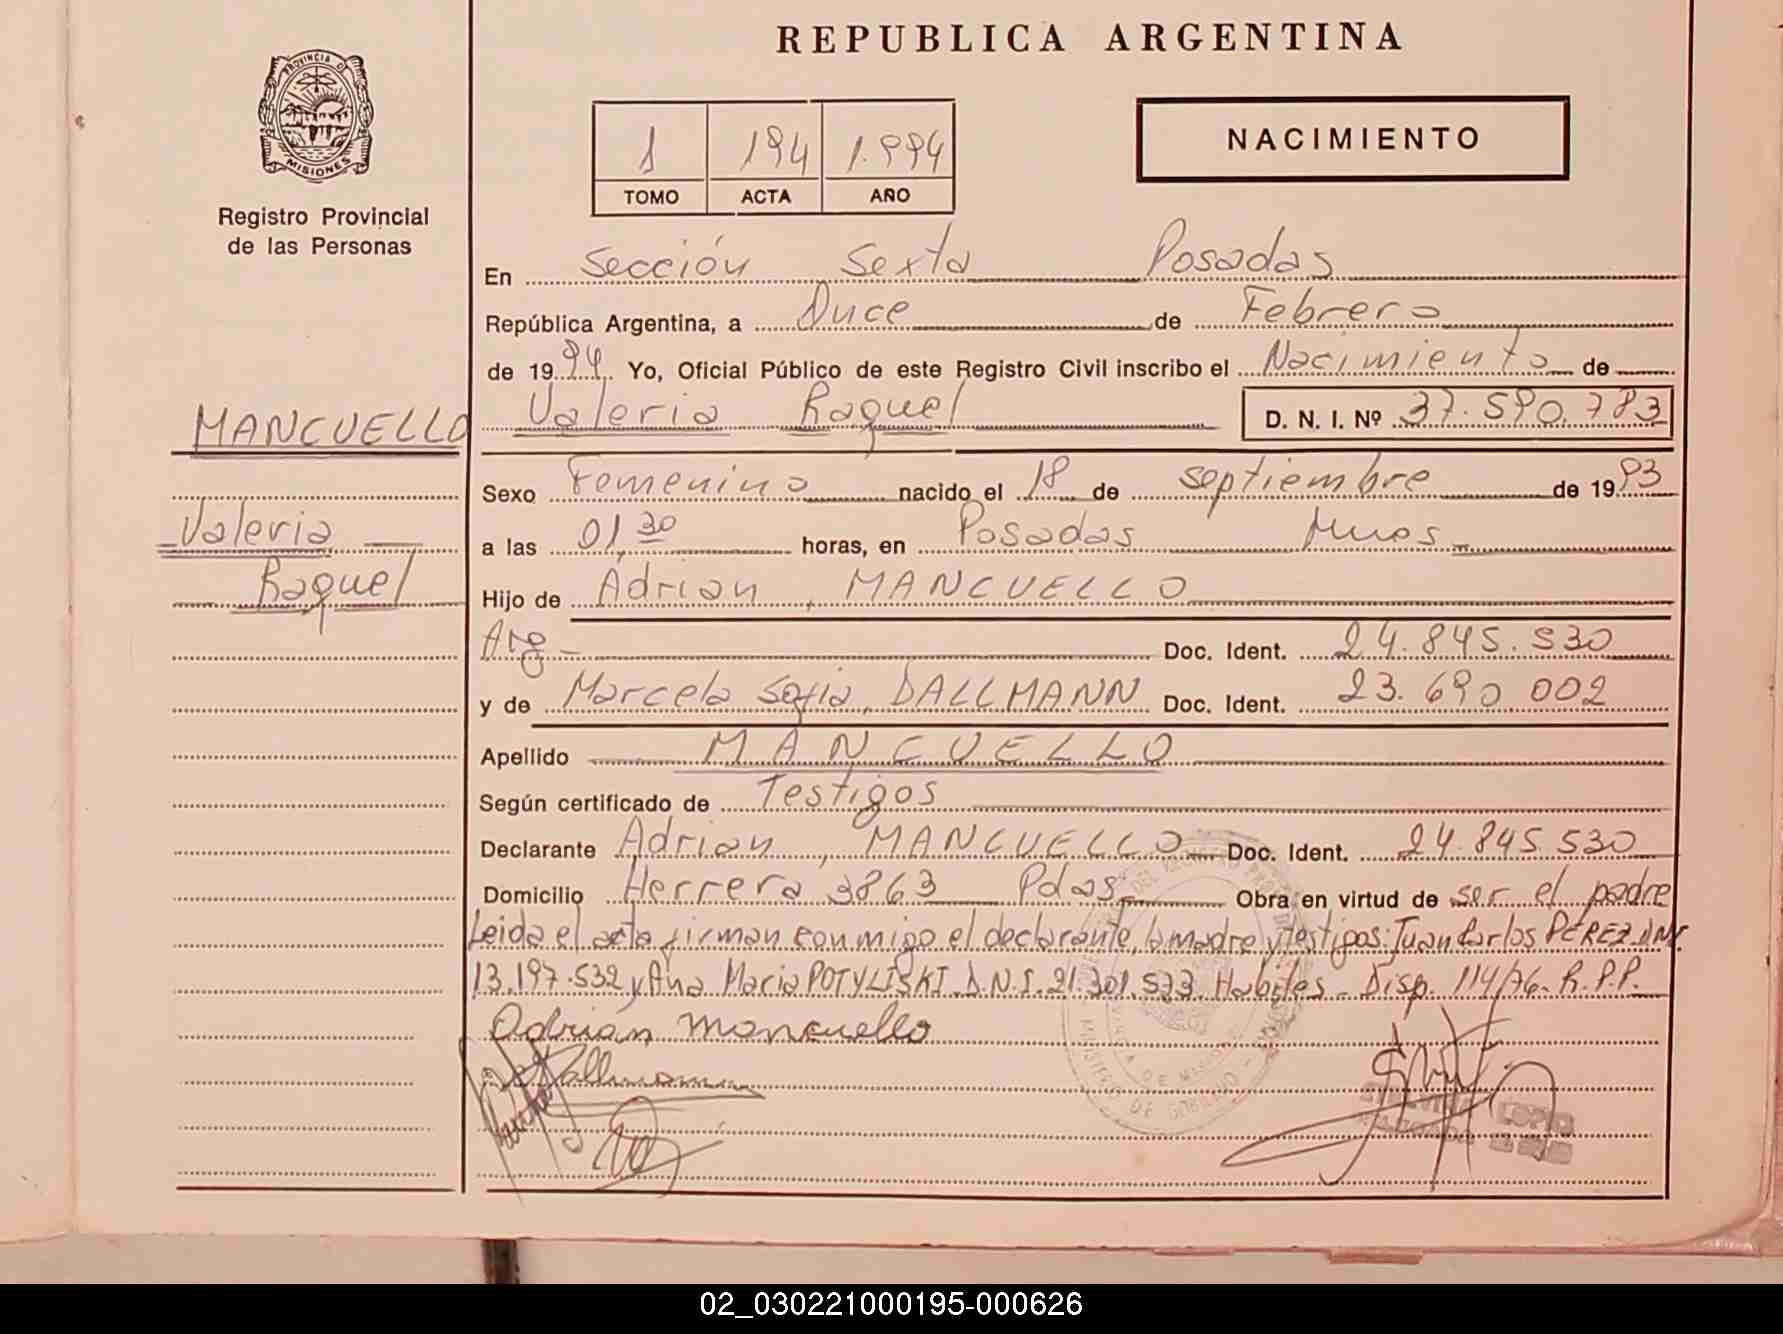 REPUBLICA ARGENTINA
PROVINCIA DE
MISIONES
Registro Provincial
de las Personas
1 194 1.994
TOMO ACTA AÑO
NACIMIENTO
En Sección Sexta Posadas
República Argentina, a Duce de Febrero
de 1994 Yo, Oficial Público de este Registro Civil inscribo el Nacimiento de
MANCUELLO Valeria Raquel D. N. I. Nº 37.590.783
Sexo Femenino nacido el 18 de septiembre de 1993
Valeria
a las 01,30 horas, en Posadas Mnes
Raquel
Hijo de Adrian, MANCUELLO
Arg Doc. Ident. 24.845.530
y de Marcela Sofia, DALLMANN Doc. Ident. 23.690 002
Apellido MANCUELLO
Según certificado de Testigos
Declarante Adrian, MANCUELLO Doc. Ident. 24.845.530
Domicilio Herrera 3863 Pdas Obra en virtud de ser el padre
Leida el acta firman conmigo el declarante, la madre y testigos: Juan Carlos PEREZ DNI.
13.197.532 y Ana Maria POTYLISKI D.N.I. 21.301.533 Habiles - Disp. 114/76. R.P.P.
Adrian Mancuello
Dallmann
MINISTERIO DE GOBIERNO
02_030221000195-000626